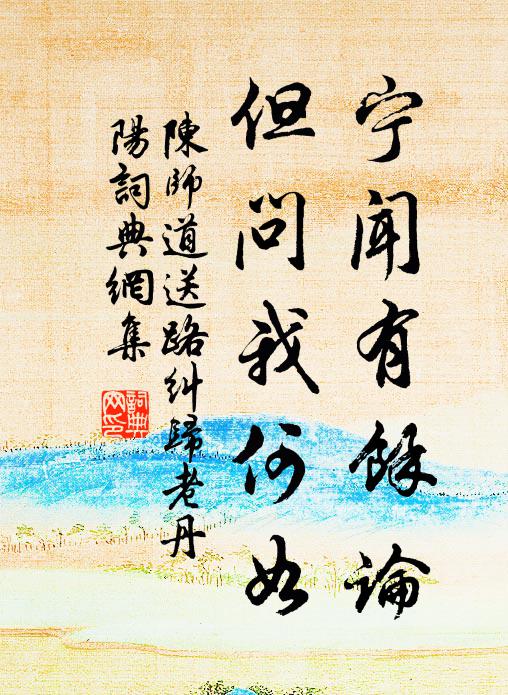 宁闻有馀论
但问我何如
陳師道送路糾歸老丹
陽詞典網集
詞典
网印